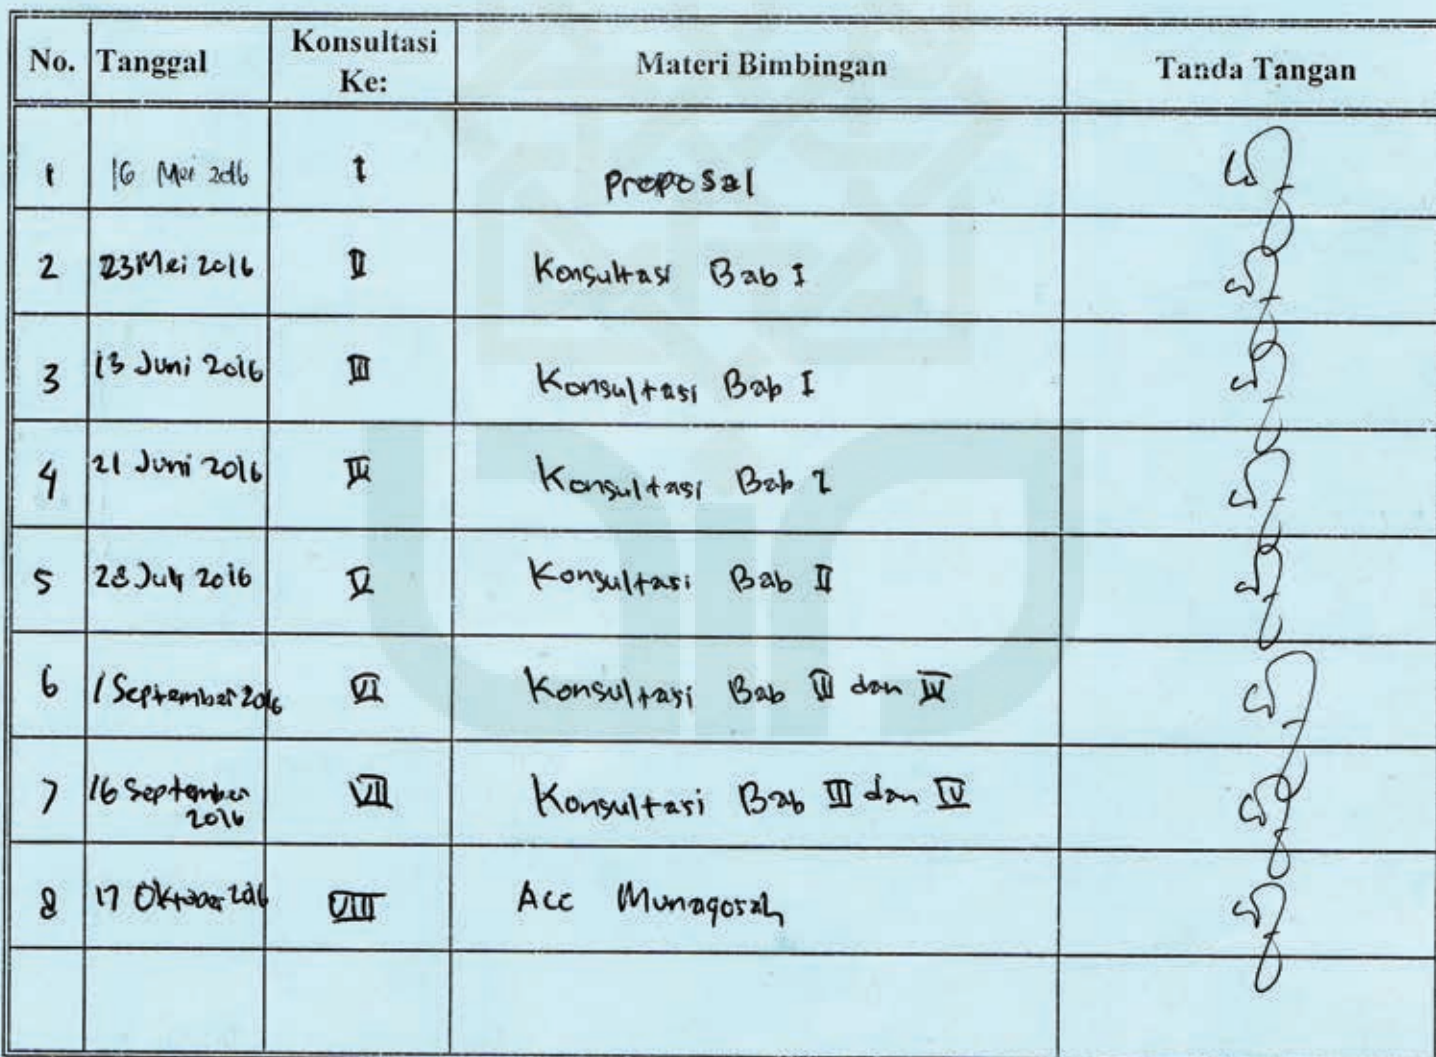 No. Tanggal Konsultasi Ke: Materi Bimbingan Tanda Tangan
1 16 Mei 2016 I Proposal
2 23 Mei 2016 II Konsultasi Bab I
3 13 Juni 2016 III Konsultasi Bab I
4 21 Juni 2016 Konsultasi Bab
5 28 Juli 2016 V Konsultasi Bab II
6 1 September 2016 VI Konsultasi Bab III dan IV
7 16 September 2016 VII Konsultasi Bab III dan IV
8 17 Oktober 2016 VIII Acc Munaqosah